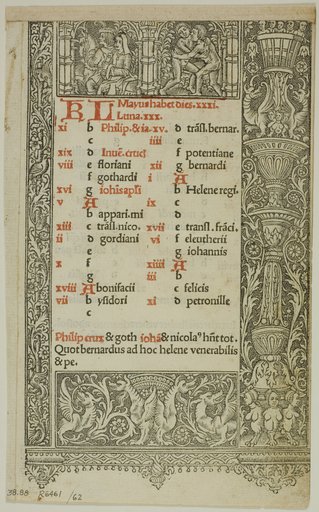 KL Mayus habet dies.xxxi.
Luna.xxx.
xi b Philip.&ia.
c
xix d Inuē.crucʒ
viii e floriani
f gothardi
xvi g iohis apłi
v A
b appari.mi
xiii c trāsl.nico.
ii d gordiani
e
x f
g
xviii A bonifacii
vii b ysidori
c
xv. d trāsl.bernar.
iiii e
xii f potentiane
g bernardi
i A
b Helene regi.
ix c
d
xvii e transl.frāci.
vi f eleutherii
g iohannis
xiiii A
iii b
c felicis
xi d petronille
Philip crux & goth iohā & nicolaꝰ hn̄t tot.
Quot bernardus ad hoc helene venerabilis
& pe.
38.88 R6461/62